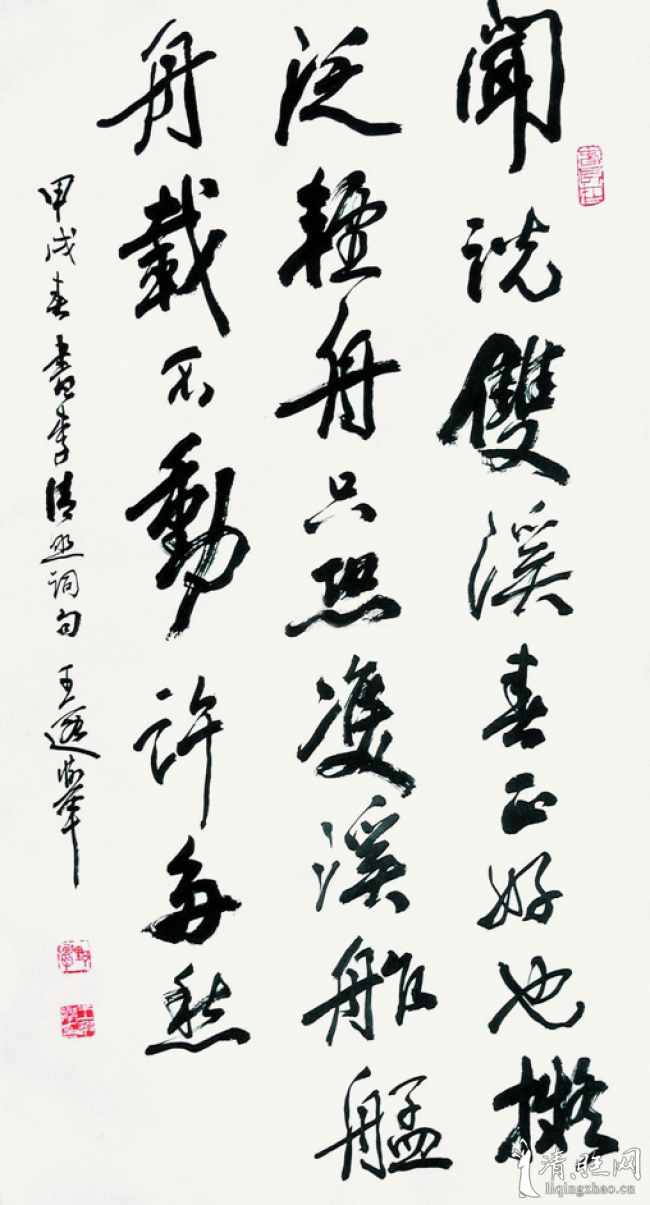 聞說雙溪春正好也擬
泛輕舟只恐雙溪舴艋
舟載不動許多愁
甲戌春書李清照詞句 王遐舉
清旺网
liqingzhao.cn